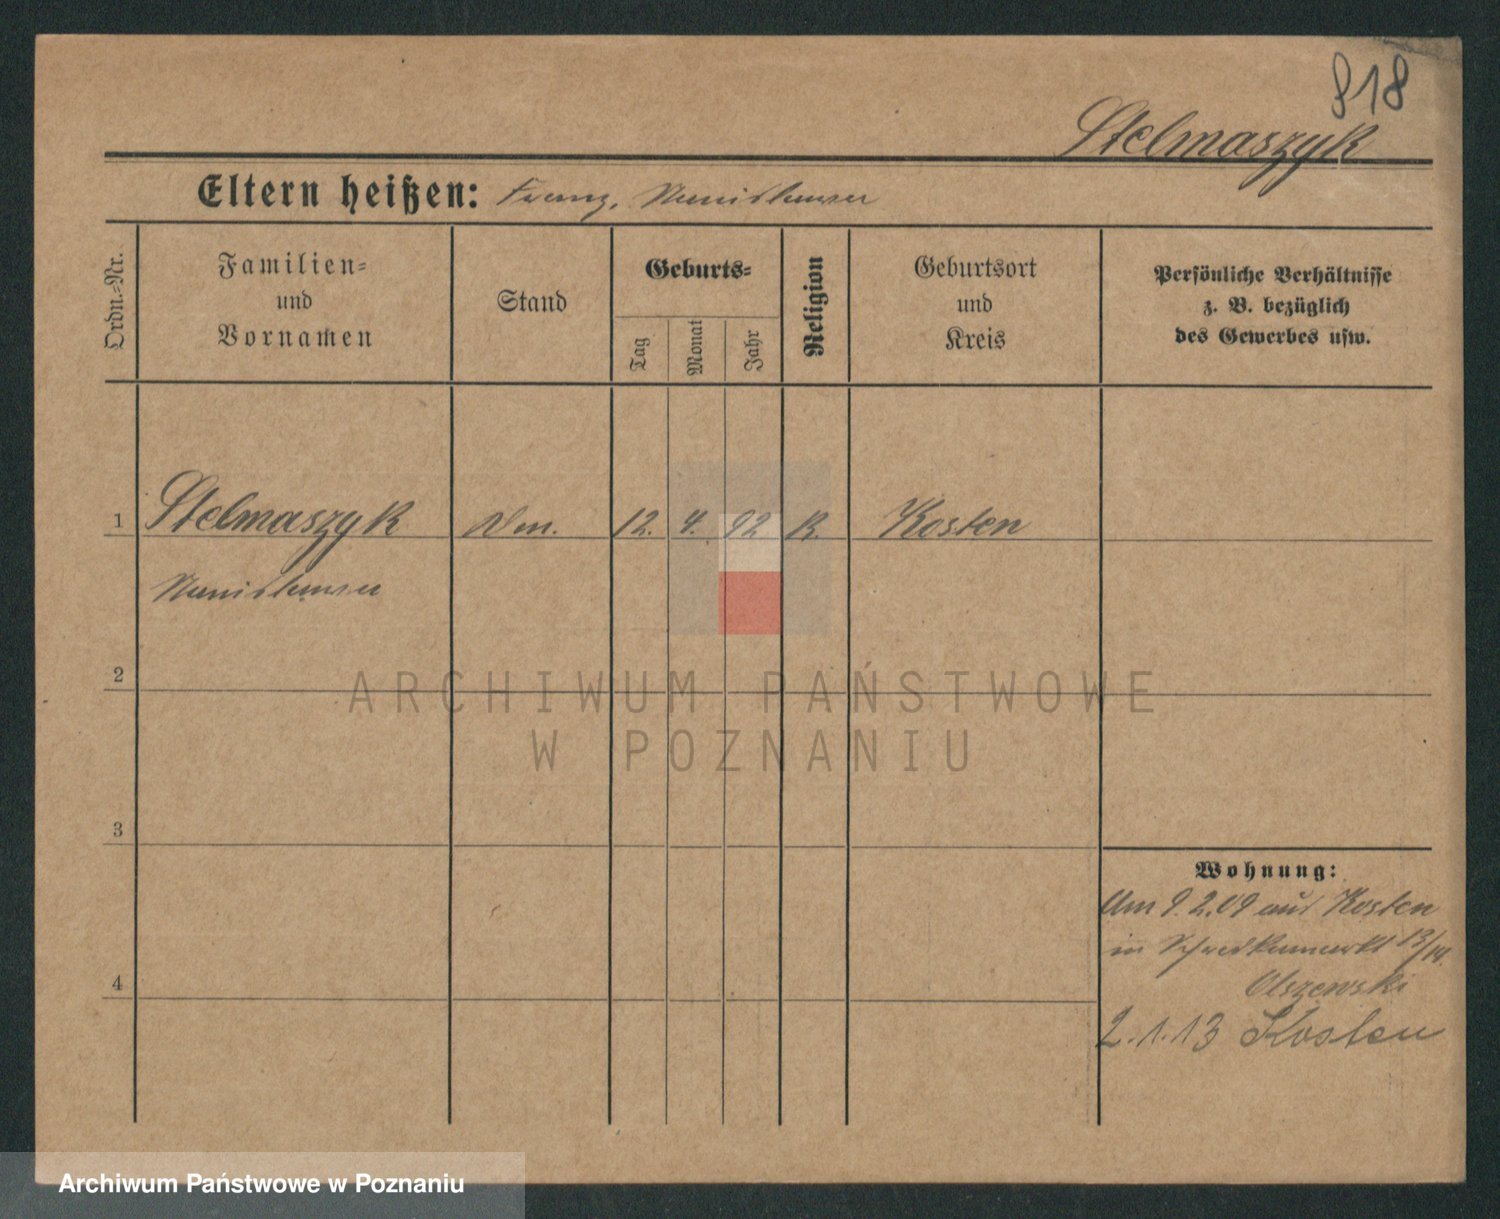 818
Stelmaszyk
Eltern heißen: Franz,
Ordn.-Nr.
Familien-
und
Vornamen
Stand
Geburts-
Tag
Monat
Jahr
Religion
Geburtsort
und
Kreis
Persönliche Verhältnisse
z. B. bezüglich
des Gewerbes usw.
1 Stelmaszyk 12. 4. 92 R. Kosten
2
3
4
Wohnung:
Am 9.2.09 aus Kosten
in 13/14.
Olszewski
2.1.13 Kosten
ARCHIWUM PAŃSTWOWE
W POZNANIU
Archiwum Państwowe w Poznaniu